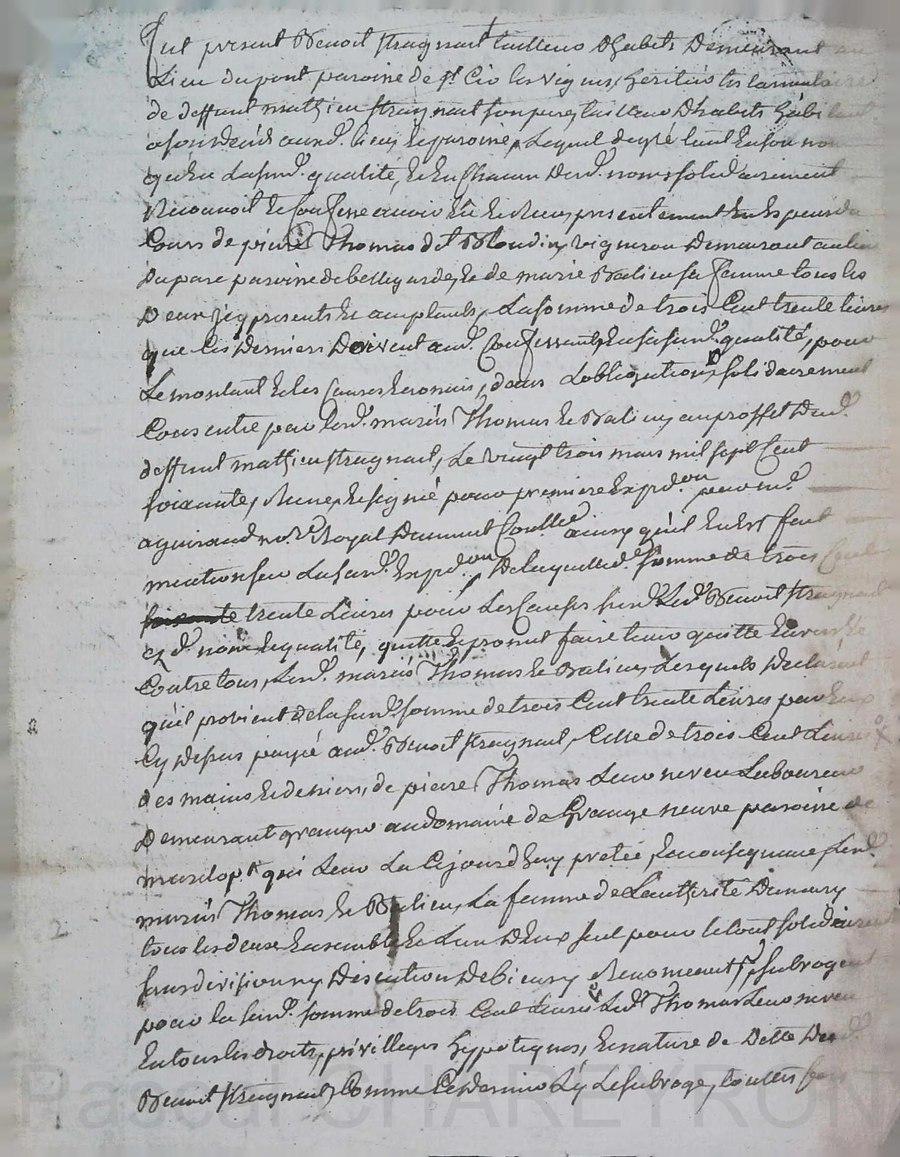 fut present Benoit stragnart tailleur d'habits demeurant au
Lieu du pont paroisse de st Cir les vignes, heritier testamentaire
de deffunt mathieu stragnart son pere, tailleur d'habits habitant
a son deceds aud. lieu et paroisse, Lequel de gré tant en son nom
qu'en La susd. qualité, et en Chacun desd. noms solidairement
Reconnoit et Confesse avoir Eu et Receu presentement en Especes de
Cours de pierre Thomas dit Blondin, vigneron demeurant au lieu
du parc paroisse de bellegarde, et de marie Balieu sa femme tous les
deux icy presents et acceptants, La somme de trois Cent trente livres
que les derniers doivent aud. Confessant, En sa susd. qualité, pour
Le montant et les Causes Enoncés, dans L'obligation, solidairement
Consentie par lesd. mariés Thomas et Balieu au proffit dud.
deffunt mathieu stragnart, Le vingt trois mars mil sept Cent
soixante, Reçue, et signé pour premiere Expd.on par me
aguiraud no.re Royal dument Conllée ainsy qu'il En est fait
mention sur La susd. Expd.on, de laquelle d. somme de trois Cent
trente Livres pour Les Causes susd. Led. Benoit stragnart
ez d. noms et qualité, quitte et promet faire tenir quitte Envers et
Contre tous, Lesd. mariés Thomas et Balieu, Lesquels declarent
qu'il provient de la susd. somme de trois Cent trente Livres par Eux
Cy dessus payée aud. Benoit stragnart, Celle de trois Cent Livres
des mains et deniers, de pierre Thomas Leur neveu Laboureur
demeurant granger au domaine de Grange neuve paroisse de
marclopt qui Leur La Cejourd'huy pretée, En consequence Lesd.
mariés Thomas et Balieu, La femme de L'authorité dumary
tous les deux Ensemble et L'un d'Eux seul pour le tout solidairement
sans division ny discution de biens y Renonceant, subrogent
pour la susd. somme de trois Cent Livres Led. Thomas Leur neveu
En tous les droits, privilleges hypoteques, et nature de dette dud.
Benoit stragnart, Comme Ce dernier L'y Le subroge, toutes fois
Pascal CHAREYRON